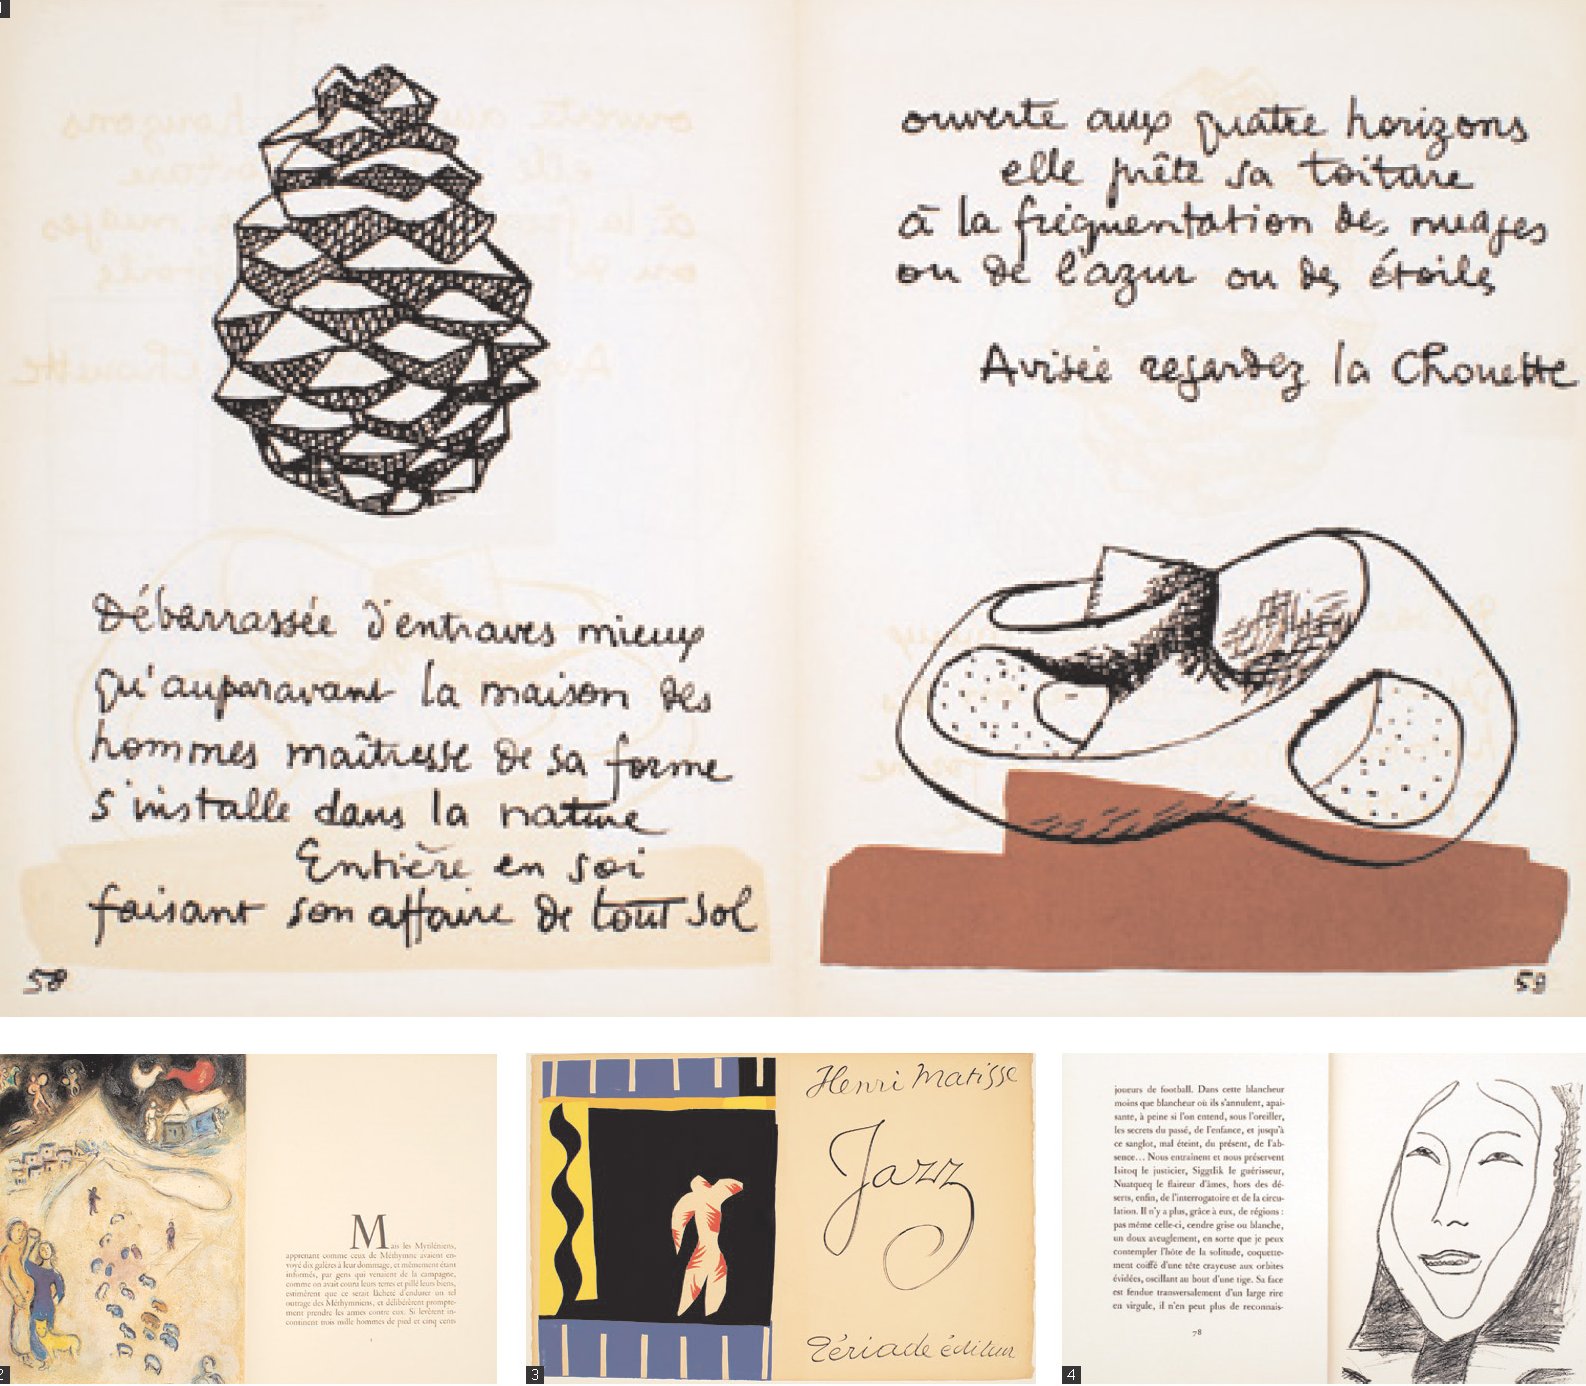 1
Débarrassée d'entraves mieux
qu'auparavant la maison des
hommes maîtresse de sa forme
s'installe dans la nature
Entière en soi
faisant son affaire de tout sol
58
ouverte aux quatre horizons
elle prête sa toiture
à la fréquentation des nuages
ou de l'azur ou des étoiles
Avisée regardez la Chouette
59
2
Mais les Mytiléniens,
apprenant comme ceux de Méthymne avaient en-
voyé dix galères à leur dommage, et mêmement étant
informés, par gens qui venaient de la campagne,
comme on avait couru leurs terres et pillé leurs biens,
estimèrent que ce serait lâcheté d'endurer un tel
outrage des Méthymniens, et délibérèrent prompte-
ment prendre les armes contre eux. Si levèrent in-
continent trois mille hommes de pied et cinq cents
3
Henri Matisse
Jazz
Tériade éditeur
4
joueurs de football. Dans cette blancheur
moins que blancheur où ils s'annulent, apai-
sante, à peine si l'on entend, sous l'oreiller,
les secrets du passé, de l'enfance, et jusqu'à
ce sanglot, mal éteint, du présent, de l'ab-
sence... Nous entraînent et nous préservent
Isitoq le justicier, Siggtlik le guérisseur,
Nuatqueq le flaireur d'âmes, hors des dé-
serts, enfin, de l'interrogatoire et de la circu-
lation. Il n'y a plus, grâce à eux, de régions :
pas même celle-ci, cendre grise ou blanche,
un doux aveuglement, en sorte que je peux
contempler l'hôte de la solitude, coquette-
ment coiffé d'une tête crayeuse aux orbites
évidées, oscillant au bout d'une tige. Sa face
est fendue transversalement d'un large rire
en virgule, il n'en peut plus de reconnais-
78